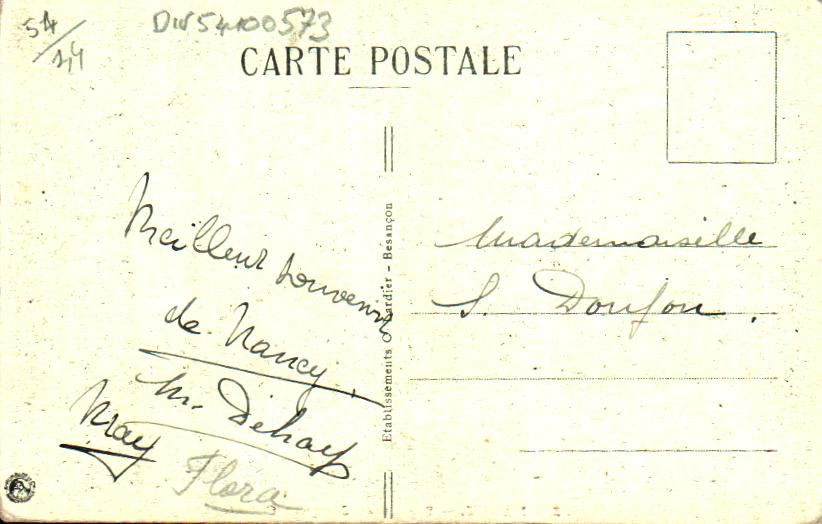 54
DIV54100573
CARTE POSTALE
Meilleur souvenir
de Nancy.
M. Dehay
Flora
Etablissements C. lardier - Besançon
Mademoiselle
S. Doufou.